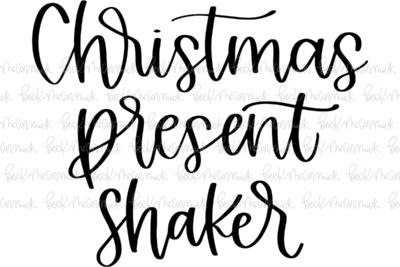 Christmas
present
shaker